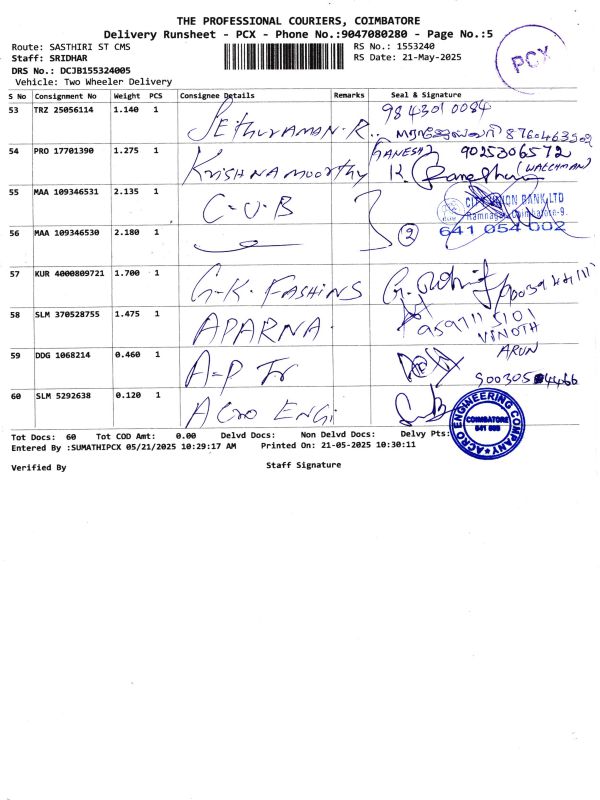 THE PROFESSIONAL COURIERS, COIMBATORE
Delivery Runsheet - PCX - Phone No.:9047080280 - Page No.:5
PCX
Route: SASTHIRI ST CMS
RS No.: 1553240
Staff: SRIDHAR
RS Date: 21-May-2025
DRS No.: DCJB155324005
Vehicle: Two Wheeler Delivery
S No Consignment No Weight PCS Consignee Details Remarks Seal & Signature
53 TRZ 25056114 1.140 1 SEthuRAMAN.R. 984301 0084
8760463502
54 PRO 17701390 1.275 1 KRishNAMooRthy GANESH 9025306572
(WATCHMAN)
K.
55 MAA 109346531 2.135 1 C-U-B CITY UNION BANK LTD
Ramnagar, Coimbatore-9.
56 MAA 109346530 2.180 1 2 641 054 002
57 KUR 4000809721 1.700 1 G-K. FASHINS
58 SLM 370528755 1.475 1 APARNA. 959711 5101
VINOTH
59 DDG 1068214 0.460 1 A-P ARUN
60 SLM 5292638 0.120 1 ACRO ENGi
ACRO ENGINEERING COMPANY
COIMBATORE
Tot Docs: 60 Tot COD Amt: 0.00 Delvd Docs: Non Delvd Docs: Delvy Pts:
Entered By :SUMATHIPCX 05/21/2025 10:29:17 AM Printed On: 21-05-2025 10:30:11
Verified By
Staff Signature